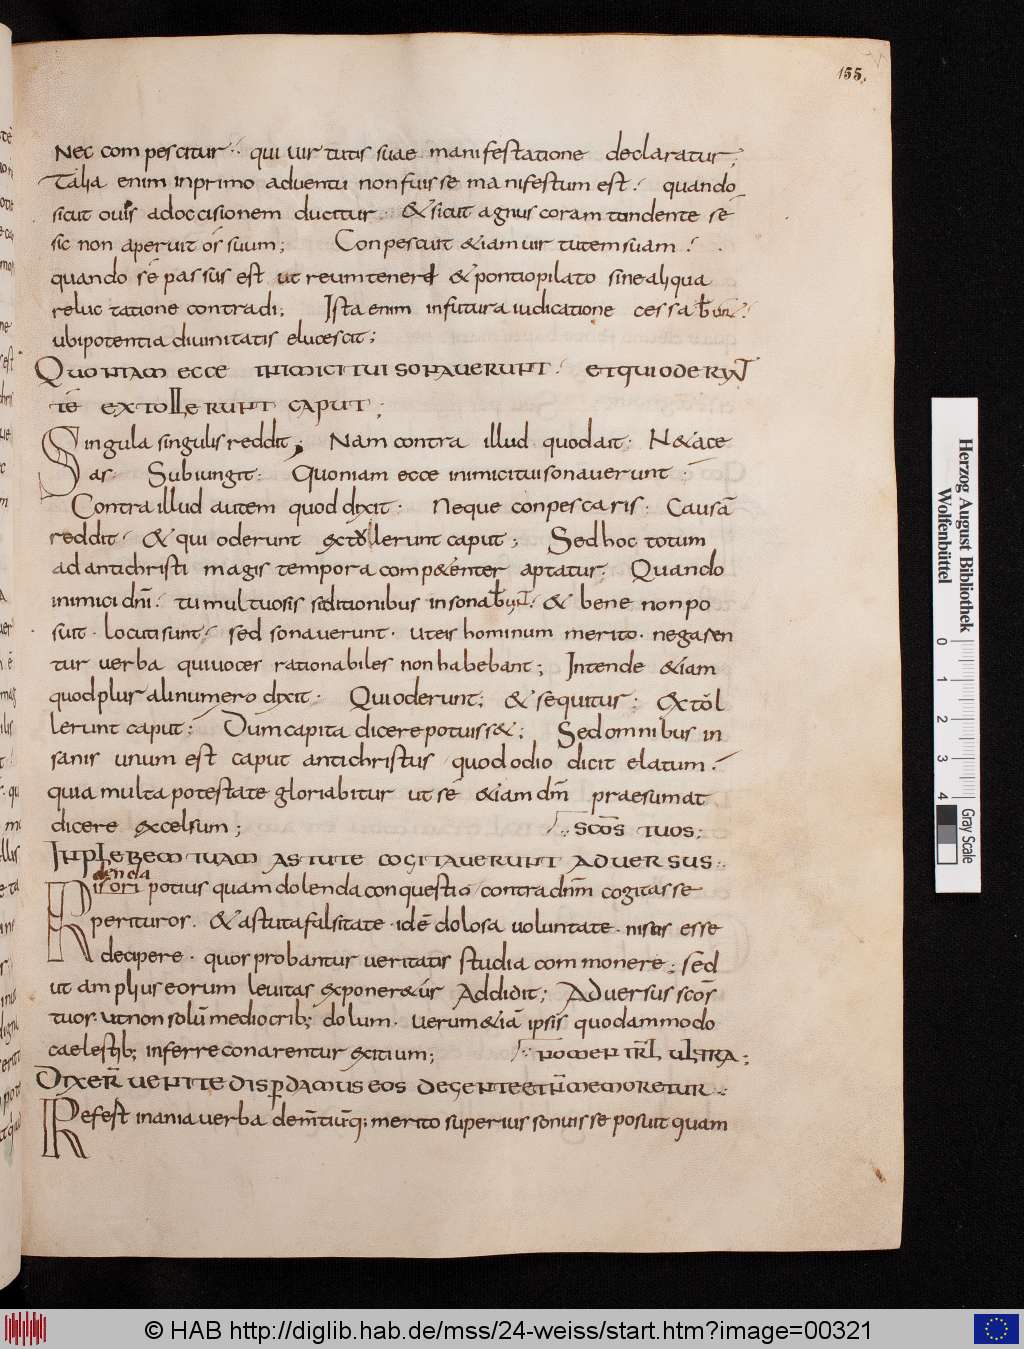 155.
Nec compescitur· qui uirtutis suae manifestatione declaratur;
Talia enim inprimo aduentu nonfuisse manifestum est· quando
sicut ouis adoccisionem ducitur· & sicut agnus coram tundente sé
sic non aperuit ós suum; Conpescuit &iam uirtutem suam·
quando sé passus est ut reum teneri & pontio pilato sine aliqua
reluctatione contradi; Ista enim infutura iudicatione cessab̄un̄
ubi potentia diuinitatis elucescit;
QUONIAM ECCE INIMICI TUI SONAUERUNT· ET QUI ODERUNT
TÉ EXTOLLERUNT CAPUT;
Singula singulis reddit; Nam contra illud quod ait· N& ace
as· Subiungit· Quoniam ecce inimici tui sonauerunt·
Contra illud autem quod dixit· Neque conpescaris· Causā
reddit· & qui oderunt extollerunt caput; Sed hoc totum
ad antichristi magis tempora comp&enter aptatur; Quando
inimici dn̄i· tumultuosis seditionibus insonab̄unt· & bene non po
suit· locuti sunt· sed sonauerunt· ut eis hominum merito· negaren
tur uerba qui uoces rationabiles non habebant; Intende &iam
quod plurali numero dixit· Qui oderunt; & sequitur; Extol
lerunt caput; Dum capita dicere potuiss&; Sed omnibus in
sanis unum est caput antichristus quod odio dicit elatum·
quia multa potestate gloriabitur ut sé &iam dm̄ praesumat
dicere excelsum; SCŌS TUOS;
IN PLEBEM TUAM ASTUTE COGITAUERUNT ADUERSUS
denda
Risori potius quam dolenda conquestio· contra dnm̄ cogitasse
perituros· & astuta falsitate· idē dolosa uoluntate· nisus esse
decipere· quos probantur ueritatis studia commonere; sed
ut amplius eorum leuitas exponer&ur Addidit; Aduersus scōs
tuos· ut non solū mediocrib; dolum· uerum &iā ipsis quodammodo
caelestib; inferre conarentur exitium; NOMEN IRL̄ ULTRA;
DIXER̄ UENITE DISPERDAMUS EOS DE GENTE ET N̄ MEMORETUR
Refest in ania uerba dem̄tiūq; merito superius sonuisse posuit quam
Herzog August Bibliothek
Wolfenbüttel
0 1 2 3 4
Gray Scale
© HAB http://diglib.hab.de/mss/24-weiss/start.htm?image=00321